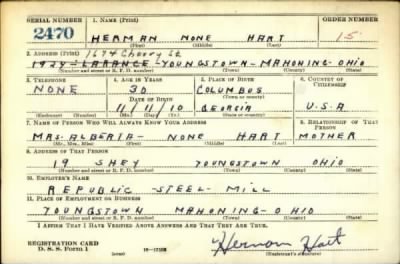 SERIAL NUMBER 1. NAME (Print) ORDER NUMBER
2470 HERMAN NONE HART 15
(First) (Middle) (Last)
2. ADDRESS (Print) 1674 Cherry St
1924 LARANCE YOUNGSTOWN - MAHONING - OHIO
(Number and street or R. F. D. number) (Town) (County) (State)
3. TELEPHONE 4. AGE IN YEARS 5. PLACE OF BIRTH 6. COUNTRY OF CITIZENSHIP
NONE 30 COLUMBUS
(Town or county)
DATE OF BIRTH
11/11/10 GEORGIA U.S.A
(Exchange) (Number) (Mo.) (Day) (Yr.) (State or country)
7. NAME OF PERSON WHO WILL ALWAYS KNOW YOUR ADDRESS 8. RELATIONSHIP OF THAT PERSON
MRS. ALBERTA - NONE HART MOTHER
(Mr., Mrs., Miss) (First) (Middle) (Last)
9. ADDRESS OF THAT PERSON
19 SHEY YOUNGSTOWN OHIO
(Number and street or R. F. D. number) (Town) (County) (State)
10. EMPLOYER'S NAME
REPUBLIC STEEL MILL
11. PLACE OF EMPLOYMENT OR BUSINESS
YOUNGSTOWN MAHONING - OHIO
(Number and street or R. F. D. number) (Town) (County) (State)
I AFFIRM THAT I HAVE VERIFIED ABOVE ANSWERS AND THAT THEY ARE TRUE.
REGISTRATION CARD
D. S. S. Form 1 (over) Herman Hart
(Registrant's signature)